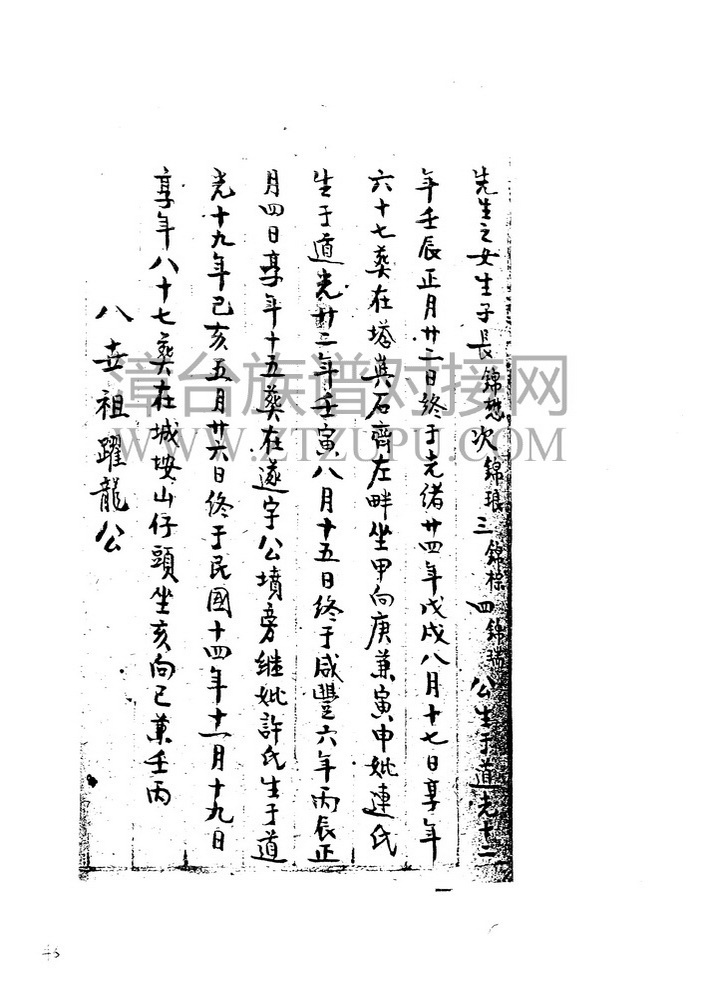 先生之女生子長錦懋次錦琅三錦棕四錦瑞公生于道光十二
年壬辰正月廿二日終于光緒廿四年戊戌八月十七日享年
六十七葬在塔兵石齊左畔坐甲向庚兼寅申妣連氏
生于道光廿二年壬寅八月十五日終于咸豐六年丙辰正
月四日享年十五葬在遂字公墳旁继妣許氏生于道
光十九年己亥五月廿六日終于民國十四年十一月十九日
享年八十七葬在城垵山仔頭坐亥向巳兼壬丙
八世祖躍龍公
漳台族谱对接网
WWW.ZTZUPU.COM